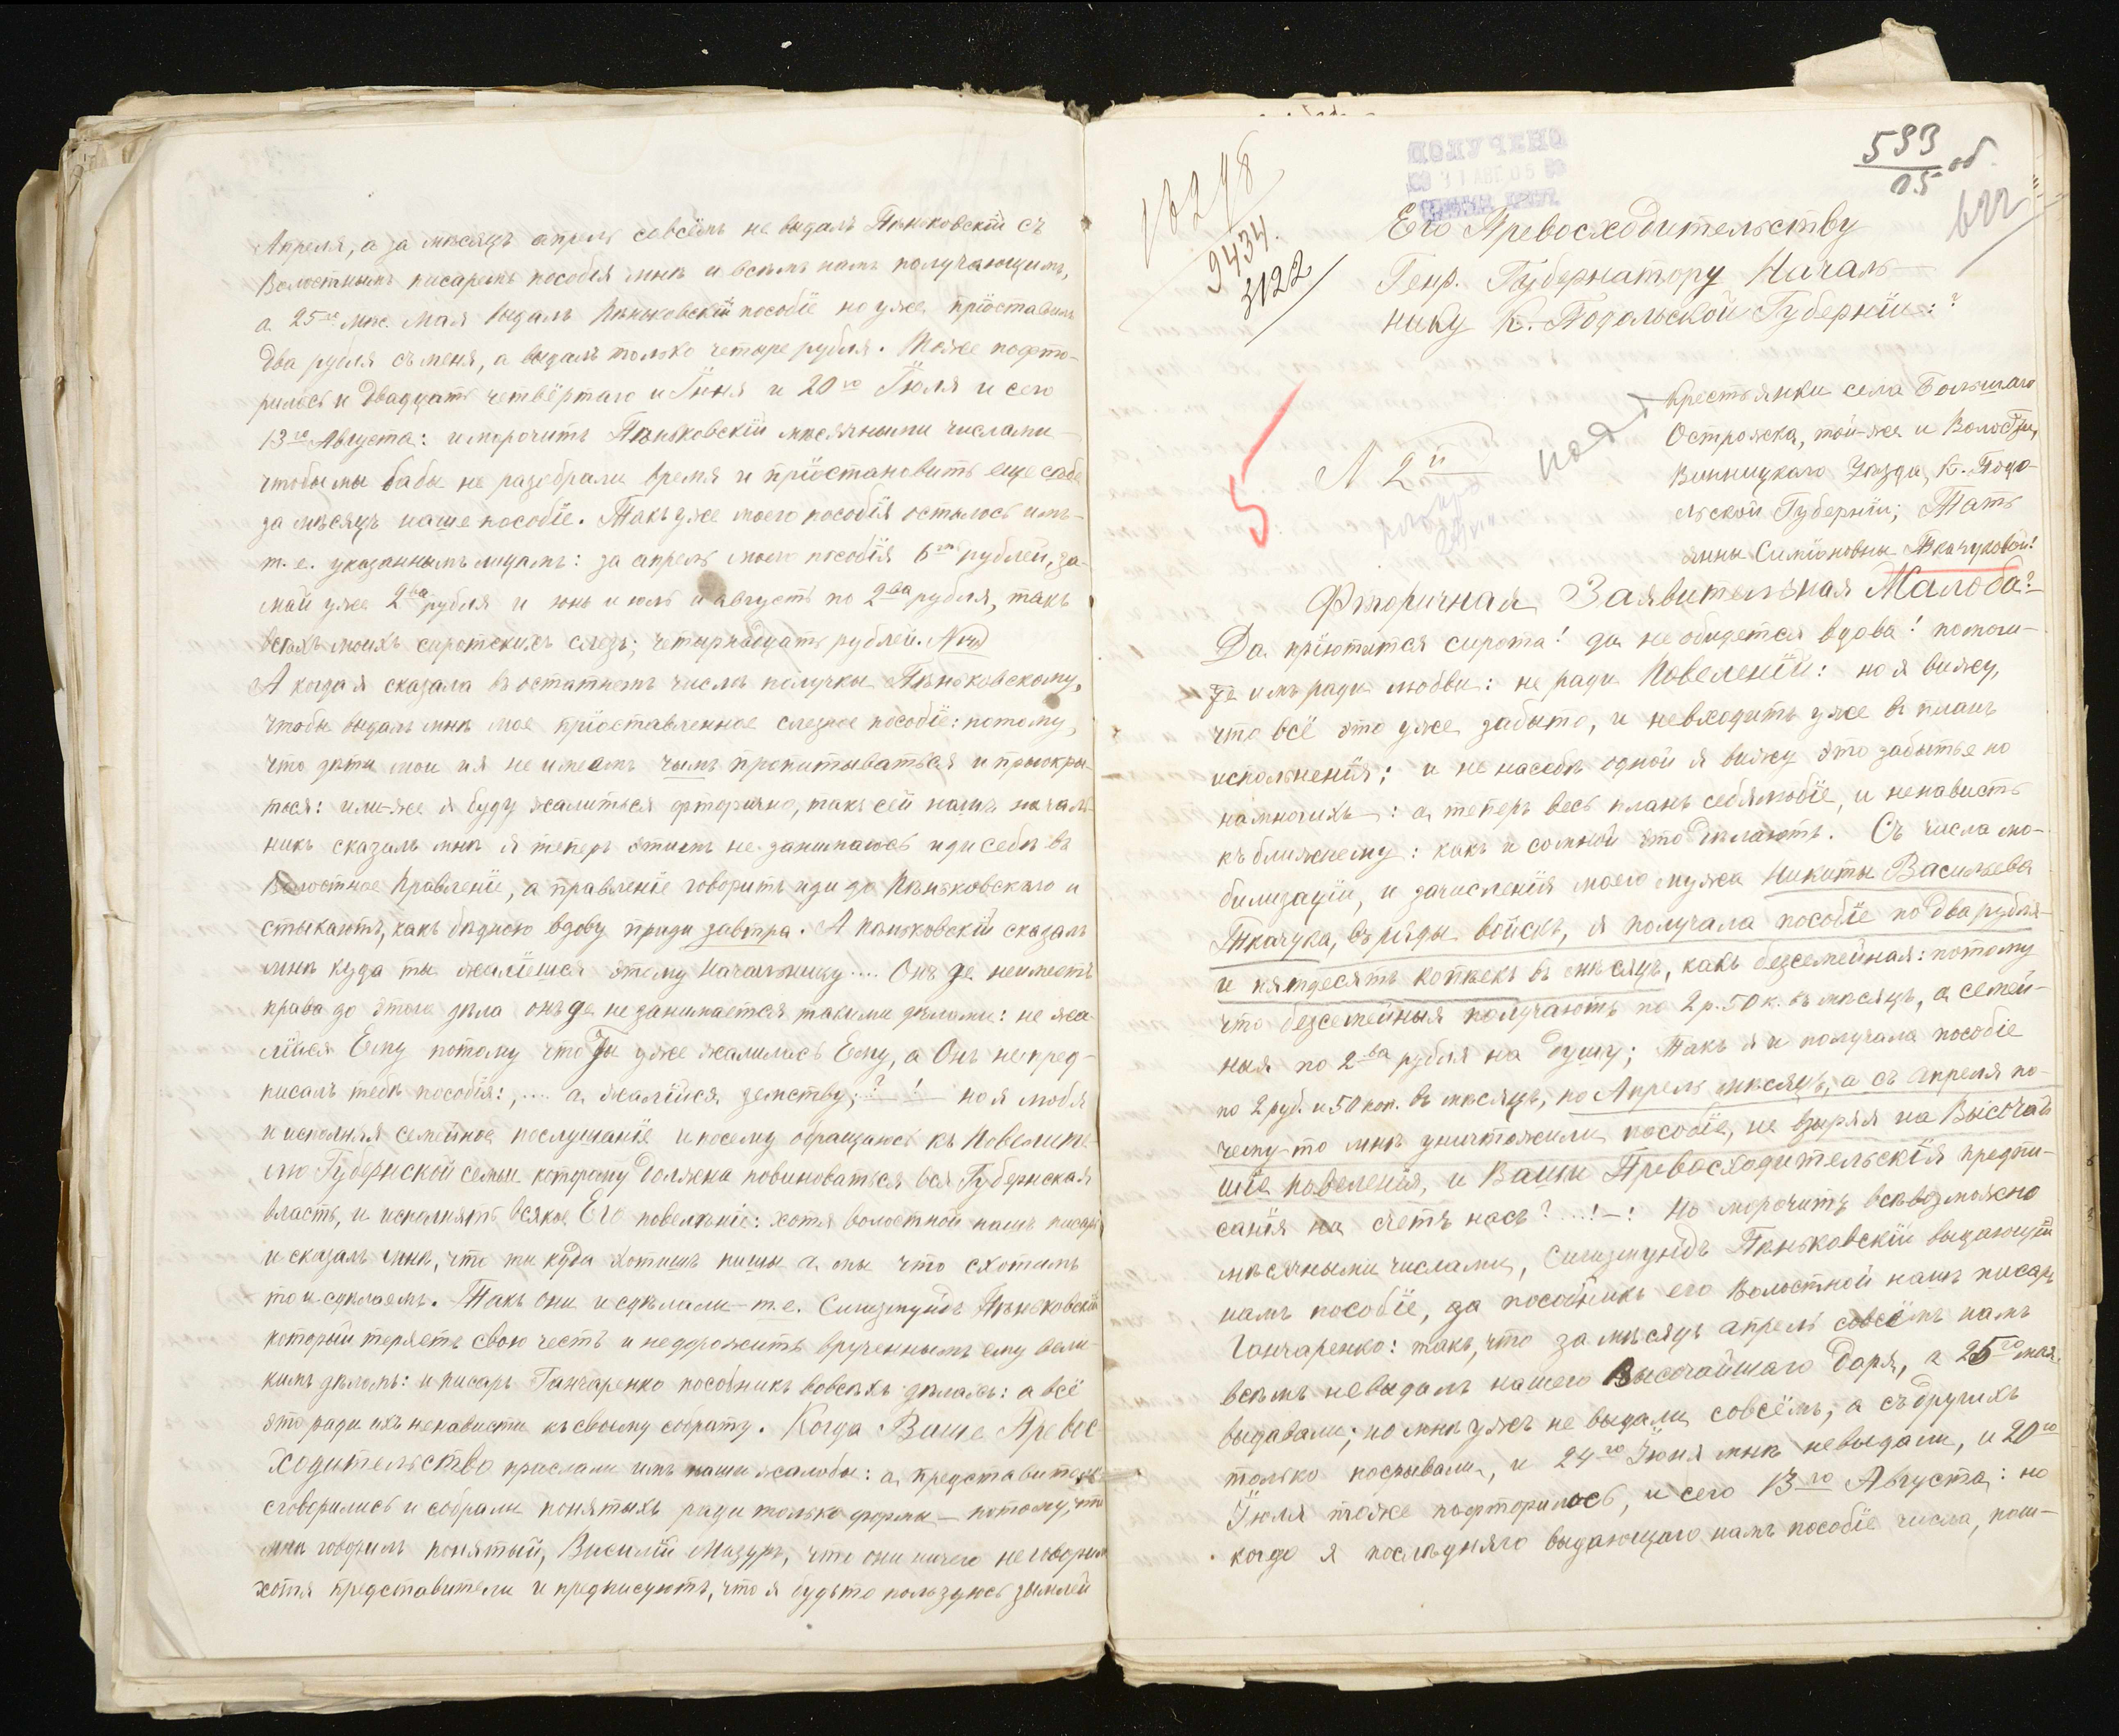 Апреля, а за мѣсяцъ апрель совсѣмъ не выдалъ Пѣньковскій съ
Волостнымъ писаремъ пособія мнѣ и всѣмъ намъ получающимъ,
а 25го мѣс. Мая выдалъ Пѣньковскій пособіе но уже пріоставилъ
два рубля съ меня, а выдалъ только четыре рубля. Тоже пофто-
рилось и двадцать четвёртаго и Іюня и 20го Іюля и сего
13го Августа: и морочить Пѣньковскій мѣсячными числами
чтобы мы бабы не разобрали время и пріостановить еще себе
за мѣсяцъ наше пособіе. Такъ уже моего пособія осталось имъ
т. е. указаннымъ лицамъ: за апрель моего пособія 6ть рублей, за-
май уже 2ва рубля и юнь и юль и августъ по 2ва рубля, такъ
всѣхъ моихъ сиротскихъ слезъ; четырнадцать рублей.
А когда я сказала въ остатнемъ числѣ получки Пѣньковскому,
чтобы выдалъ мнѣ мое пріоставленное слезное пособіе: потому,
что дѣти мои и я не имѣемъ чымъ пропитываться и пріокры-
тося: или-же я буду жалиться фторично, такъ сей нашъ началь
никъ сказалъ мнѣ я теперь этимъ не занимаюсь иди себѣ въ
Волостное Правленіе, а правленіе говорить иди до Пѣньковскаго и
стыкаютъ, какъ бѣдною вдову приди завтра. А Пѣньковскій сказалъ
мнѣ куда ты жалиешся этому Начальнику.... Онъ де неимѣетъ
права до этого дѣла онъ де не занимается такими дѣлами: не жа-
лійся Ему потому что Ты уже жалилась Ему, а Онъ не пред-
писалъ тебѣ пособія:,.... а жалійся земству;?—!— но я любя
и исполняя семейное послушаніе и посему обращаюсь къ Повелите-
лю Губернской семьи которому должна повиноваться вся Губернская
власть, и исполнять всякое Его повелѣніе: хотя волостной нашъ писарь
и сказалъ мнѣ, что ты куда хотишь пишы а мы что схотимъ
то и сдѣлаемъ. Такъ они и сдѣлали—т. е. Сигизмундъ Пѣньковскій
который теряетъ свою честь и недорожить врученнымъ ему вели-
кимъ дѣломъ: и писарь Ганчаренко пособникъ вовсѣхъ дѣлахъ: а всё
это ради ихъ ненависти къ своему собрату. Когда Ваше Превос
ходительство прислали имъ наши жалобы: а представители
сговорились и собрали понятыхъ ради только формы — потому, что
мнѣ говорилъ понятый, Василій Мазуръ, что они ничего не говорили
хотя представители и предписують, что я будьто пользуюсь зымлей
16248
9434.
3122
31 АВГ 05
593
05 об.
622
Его Превосходительству
Генр. Губернатору Началь-
нику К. Подольской Губерніи:?
Крестьянки села Большаго
Острожка, той-же и Волости,
Винницкаго Уѣзда, К. Подо-
льской Губерніи; Тать
янны Симіоновны Ткачуковой!
5
№ 2й
Фторичная Заявительная Жалоба?
Да пріютится сирота! да не обидется вдова! помоги-
те имъ ради любви: не ради Повеленій: но я вижу,
что всё это уже забыто, и невходить уже въ планъ
исполненія; и не насебѣ одной я вижу это забытье но
намногихъ: а теперь весь планъ себялюбіе, и ненависть
къ ближнему: какъ и сомной это дѣлаютъ. Съ числа мо-
билизаціи, и зачисленія моего мужа Никиты Васильева
Ткачука, въ ряды войскъ, я получала пособіе по два рубля
и пятдесять копѣекъ въ мѣсяцъ, какъ безсемейная: потому
что безсемейныя получають по 2 р. 50 к. въ мѣсяцъ, а семей-
ныя по 2ва рубля на душу; Такъ я и получала пособіе
по 2 руб. и 50 коп. въ мѣсяцъ, по Апрель мѣсяцъ, а съ апреля по-
чему-то мнѣ уничтожили пособіе, не взыряя на Высочай
шіе повеленія, и Ваши Превосходительскія предпи-
санія на счетъ насъ?....!—: Но морочить всѣвозможно
мѣсячными числами, Сигизмундъ Пѣньковскій выдающій
намъ пособіе, да пособникъ его Волостной нашъ писарь
Ганчаренко: такъ, что за мѣсяцъ апрель совсѣмъ намъ
всѣмъ невыдалъ нашего Высочайшаго Даря, а 25го мая
выдавали; но мнѣ ужъ не выдали совсѣмъ, а съ другихъ
только посрывали, и 24го Іюня мнѣ невыдали, и 20го
Іюля тоже пофторилось, и сего 13го Августа: но
когда я послѣдняго выдающаго намъ пособіе числа, пош-